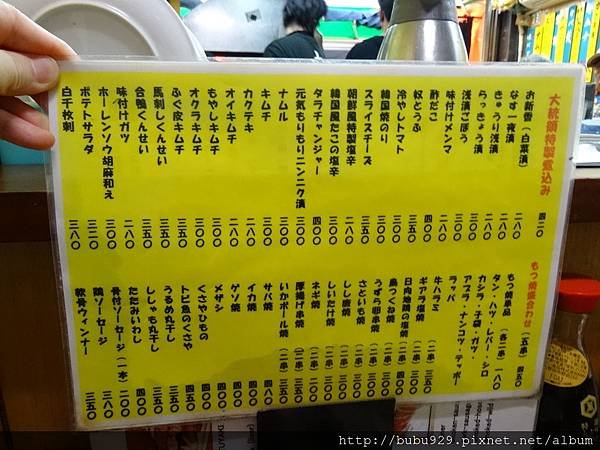 大統領特製煮込み 四二〇
お新香（白菜漬） 二八〇
なす一夜漬 二八〇
きゅうり浅漬 二八〇
らっきょう漬
浅漬ごぼう 三〇〇
味付けメンマ 三〇〇
酢だこ 四〇〇
奴とうふ 三〇〇
冷やしトマト 三五〇
韓国焼のり 三〇〇
スライスチーズ 三五〇
朝鮮風特製塩辛 二八〇
韓国風たこの塩辛 三〇〇
タラチャンジャー 四〇〇
元気もりもりニンニク漬 三〇〇
ナムル 二八〇
キムチ 三〇〇
カクテキ 二八〇
オイキムチ 二八〇
もやしキムチ 三〇〇
オクラキムチ 三〇〇
ふぐ皮キムチ 三五〇
馬刺しくんせい 三五〇
合鴨くんせい 三五〇
味付けガツ 二八〇
ホーレンソウ胡麻和え 三〇〇
ポテトサラダ 三二〇
白千枚刺 三八〇
もつ焼盛合わせ（五串） 四五〇
もつ焼串品（各二串）一八〇
タン・ハツ・レバー・シロ
カシラ・子袋・ガツ
アブラ・ナンコツ・テッポー
ラッパ
牛ハラミ（一串）三五〇
ギアラ塩焼（二串）三〇〇
日向地鶏の塩焼 四〇〇
鳥つくね焼（二串）三〇〇
うずら卵串焼（二串）三〇〇
さといも焼（二串）三五〇
しし唐焼（二串）三〇〇
しいたけ焼（二串）三〇〇
ネギ焼（二串）二〇〇
厚揚げ串焼（二串）三〇〇
いかボール焼（二串）三五〇
サバ焼 四八〇
イカ焼 四〇〇
ゲソ焼 四〇〇
メザシ 四〇〇
くさやひもの 五〇〇
トビ魚のくさや 四五〇
うるめ丸干し 三五〇
ししゃも丸干し 三五〇
たたみいわし 三五〇
骨付ソーセージ（一本）二〇〇
鶏ソーセージ 三八〇
軟骨ウィンナー 三五〇
http://bubu929.pixnet.net/album